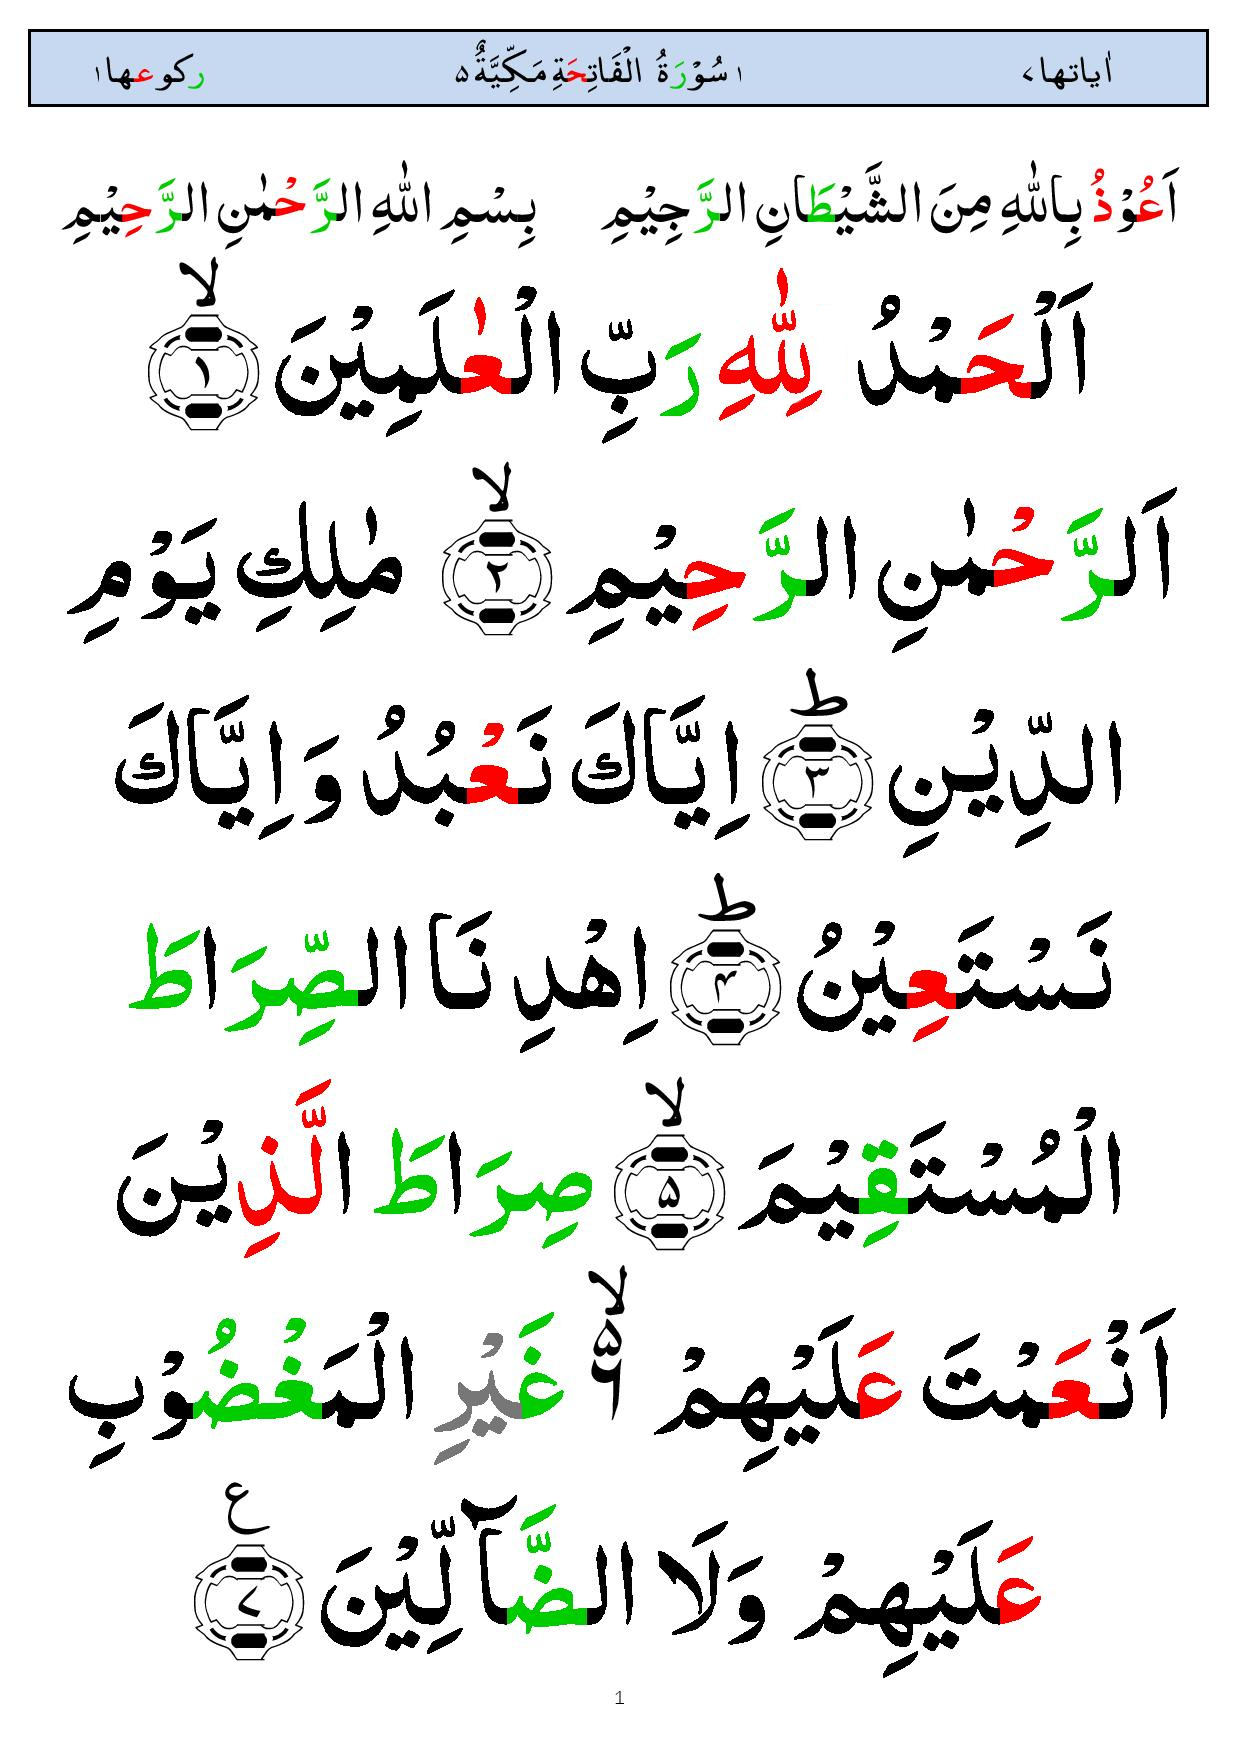 اٰیاتها۷ ۱ سُوْرَةُ الْفَاتِحَةِ مَكِّیَّةٌ ۵ ركوعها۱
اَعُوْذُ بِاللّٰهِ مِنَ الشَّیْطَانِ الرَّجِیْمِ بِسْمِ اللّٰهِ الرَّحْمٰنِ الرَّحِیْمِ
اَلْحَمْدُ لِلّٰهِ رَبِّ الْعٰلَمِیْنَ ۙ﴿۱﴾
اَلرَّحْمٰنِ الرَّحِیْمِ ۙ﴿۲﴾ مٰلِكِ یَوْمِ
الدِّیْنِ ؕ﴿۳﴾ اِیَّاكَ نَعْبُدُ وَاِیَّاكَ
نَسْتَعِیْنُ ؕ﴿۴﴾ اِهْدِنَا الصِّرَاطَ
الْمُسْتَقِیْمَ ۙ﴿۵﴾ صِرَاطَ الَّذِیْنَ
اَنْعَمْتَ عَلَیْهِمْ ۙ۵ ۶ غَیْرِ الْمَغْضُوْبِ
عَلَیْهِمْ وَلَا الضَّآلِّیْنَ ع﴿۷﴾
1